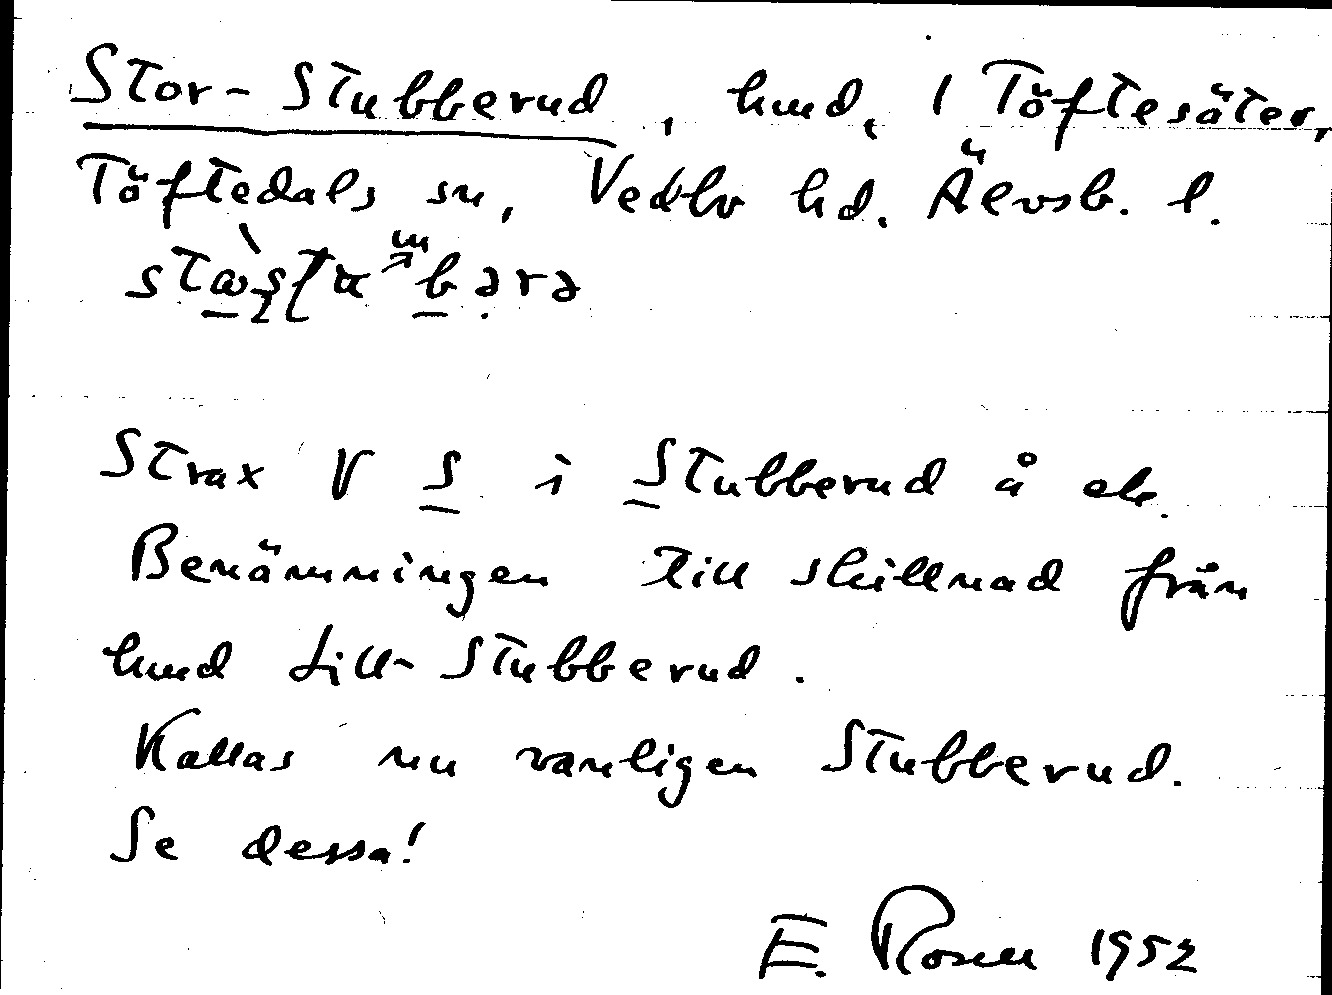 Stor-Stubberud, hmd, 1 Töftesäter,
Töftedals sn, Vedbo hd. Älvsb. l.
Strax V S i Stubberud å ek.
Benämningen till skillnad från
hmd Lill-Stubberud.
Kallas nu vanligen Stubberud.
Se dessa!
E. Rosell 1952